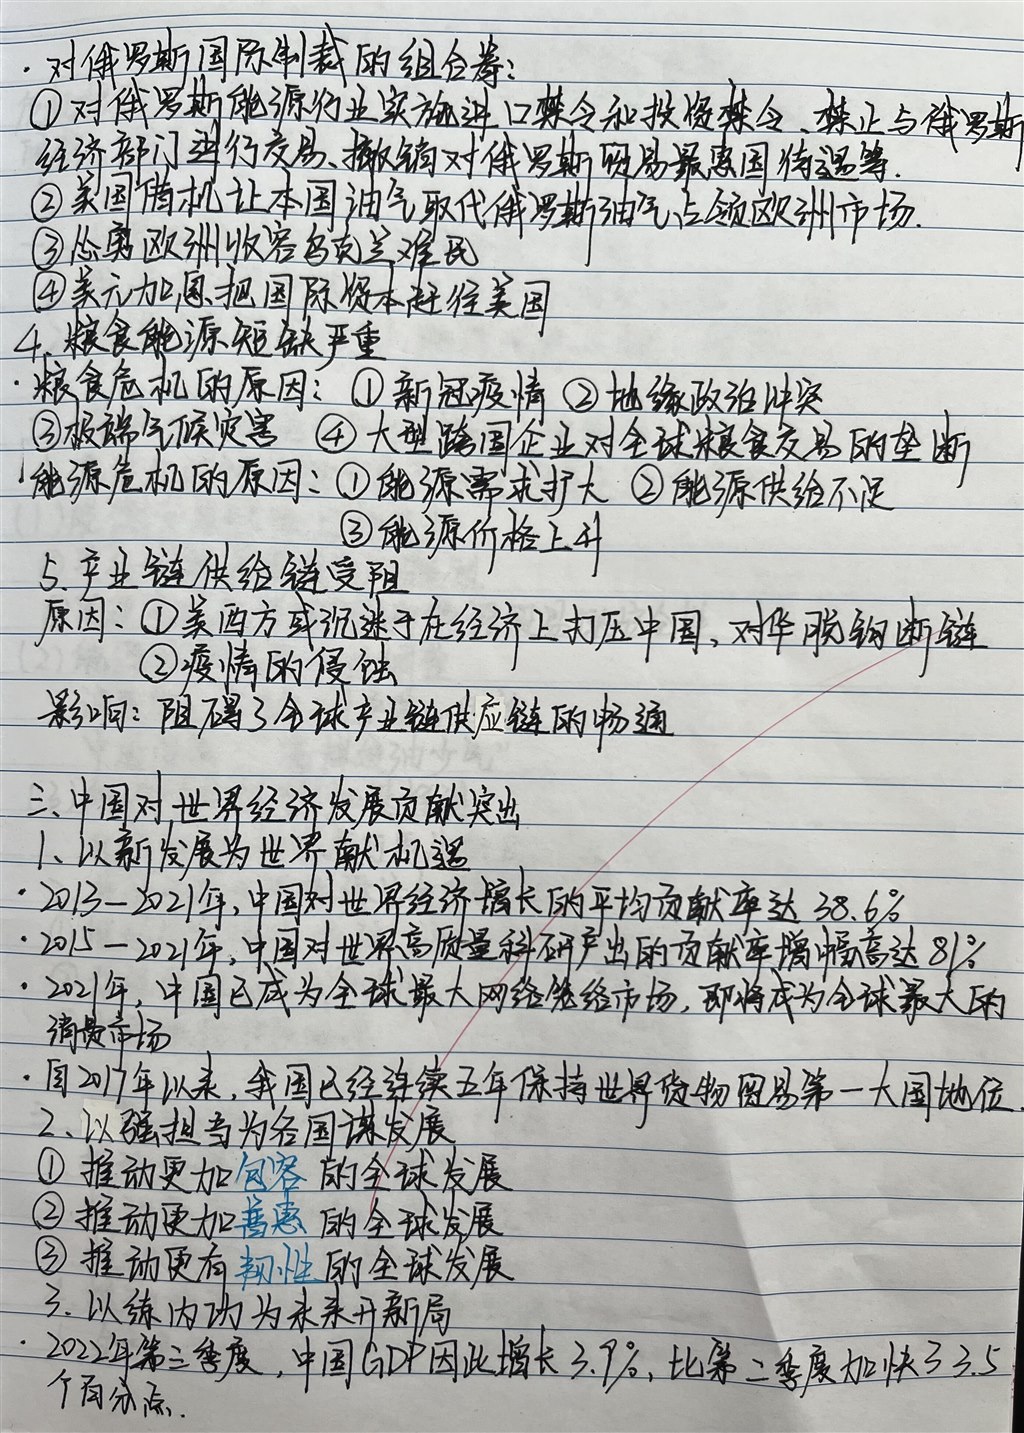 ·对俄罗斯国际制裁的组合拳：
①对俄罗斯能源行业实施进口禁令和投资禁令、禁止与俄罗斯
经济部门进行交易、撤销对俄罗斯贸易最惠国待遇等.
②美国借机让本国油气取代俄罗斯油气占领欧洲市场.
③怂恿欧洲收容乌克兰难民
④美元加息把国际资本赶往美国
4、粮食能源短缺严重
·粮食危机的原因：①新冠疫情 ②地缘政治冲突
③极端气候灾害 ④大型跨国企业对全球粮食交易的垄断
能源危机的原因：①能源需求扩大 ②能源供给不足
③能源价格上升
5.产业链供给链受阻
原因：①美西方或沉迷于在经济上打压中国、对华脱钩断链
②疫情的侵蚀
影响：阻碍了全球产业链供应链的畅通
三、中国对世界经济发展贡献突出
1、以新发展为世界献机遇
·2013—2021年，中国对世界经济增长的平均贡献率达38.6%
·2015—2021年，中国对世界高质量科研产出的贡献率增幅高达81%
·2021年，中国已成为全球最大网络市场，即将成为全球最大的
消费市场
·自2017年以来，我国已经连续五年保持世界货物贸易第一大国地位.
2、以强担当为各国谋发展
①推动更加包容的全球发展
②推动更加普惠的全球发展
③推动更有韧性的全球发展
3.以练内功为未来开新局
·2022年第三季度，中国GDP因此增长3.9%，比第二季度加快了3.5
个百分点.